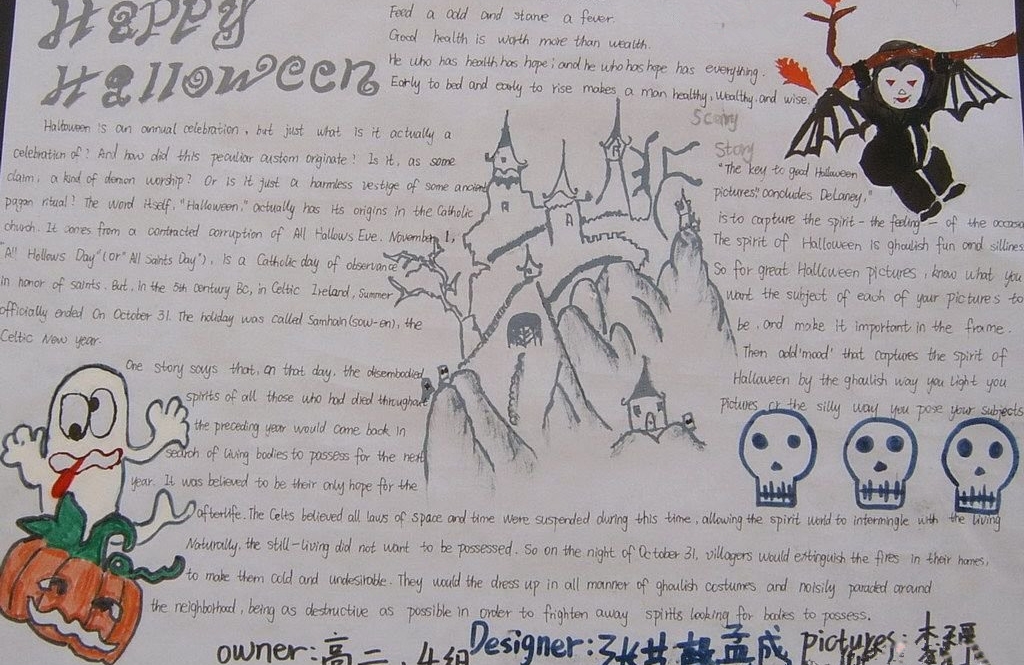 Happy
Halloween
Feed a cold and starve a fever.
Good health is worth more than wealth.
He who has health has hope; and he who has hope has everything.
Early to bed and early to rise makes a man healthy, wealthy, and wise.
Halloween is an annual celebration, but just what is it actually a
celebration of? And how did this peculiar custom originate? Is it, as some
claim, a kind of demon worship? Or is it just a harmless vestige of some ancient
pagan ritual? The word itself, "Halloween," actually has its origins in the Catholic
church. It comes from a contracted corruption of All Hallows Eve. November 1,
"All Hollows Day" (or "All Saints Day"), is a Catholic day of observance
in honor of saints. But, in the 5th century BC, in Celtic Ireland, summer
officially ended on October 31. The holiday was called Samhain (sow-en), the
Celtic New year.
One story says that, on that day, the disembodied
spirits of all those who had died throughout
the preceding year would come back in
search of living bodies to possess for the next
year. It was believed to be their only hope for the
afterlife. The Celts believed all laws of space and time were suspended during this time, allowing the spirit world to intermingle with the living
Naturally, the still-living did not want to be possessed. So on the night of October 31, villagers would extinguish the fires in their homes,
to make them cold and undesirable. They would the dress up in all manner of ghoulish costumes and noisily paraded around
the neighborhood, being as destructive as possible in order to frighten away spirits looking for bodies to possess.
Scary
Story
"The key to good Halloween
pictures," concludes DeLaney,"
is to capture the spirit - the feeling - of the occasion
The spirit of Halloween is ghoulish fun and silliness
So for great Halloween pictures, know what you
want the subject of each of your pictures to
be, and make it important in the frame.
Then add 'mood' that captures the spirit of
Halloween by the ghoulish way you light you
pictures or the silly way you pose your subjects
owner: 高二.4组 Designer: 孟成 pictures: 李